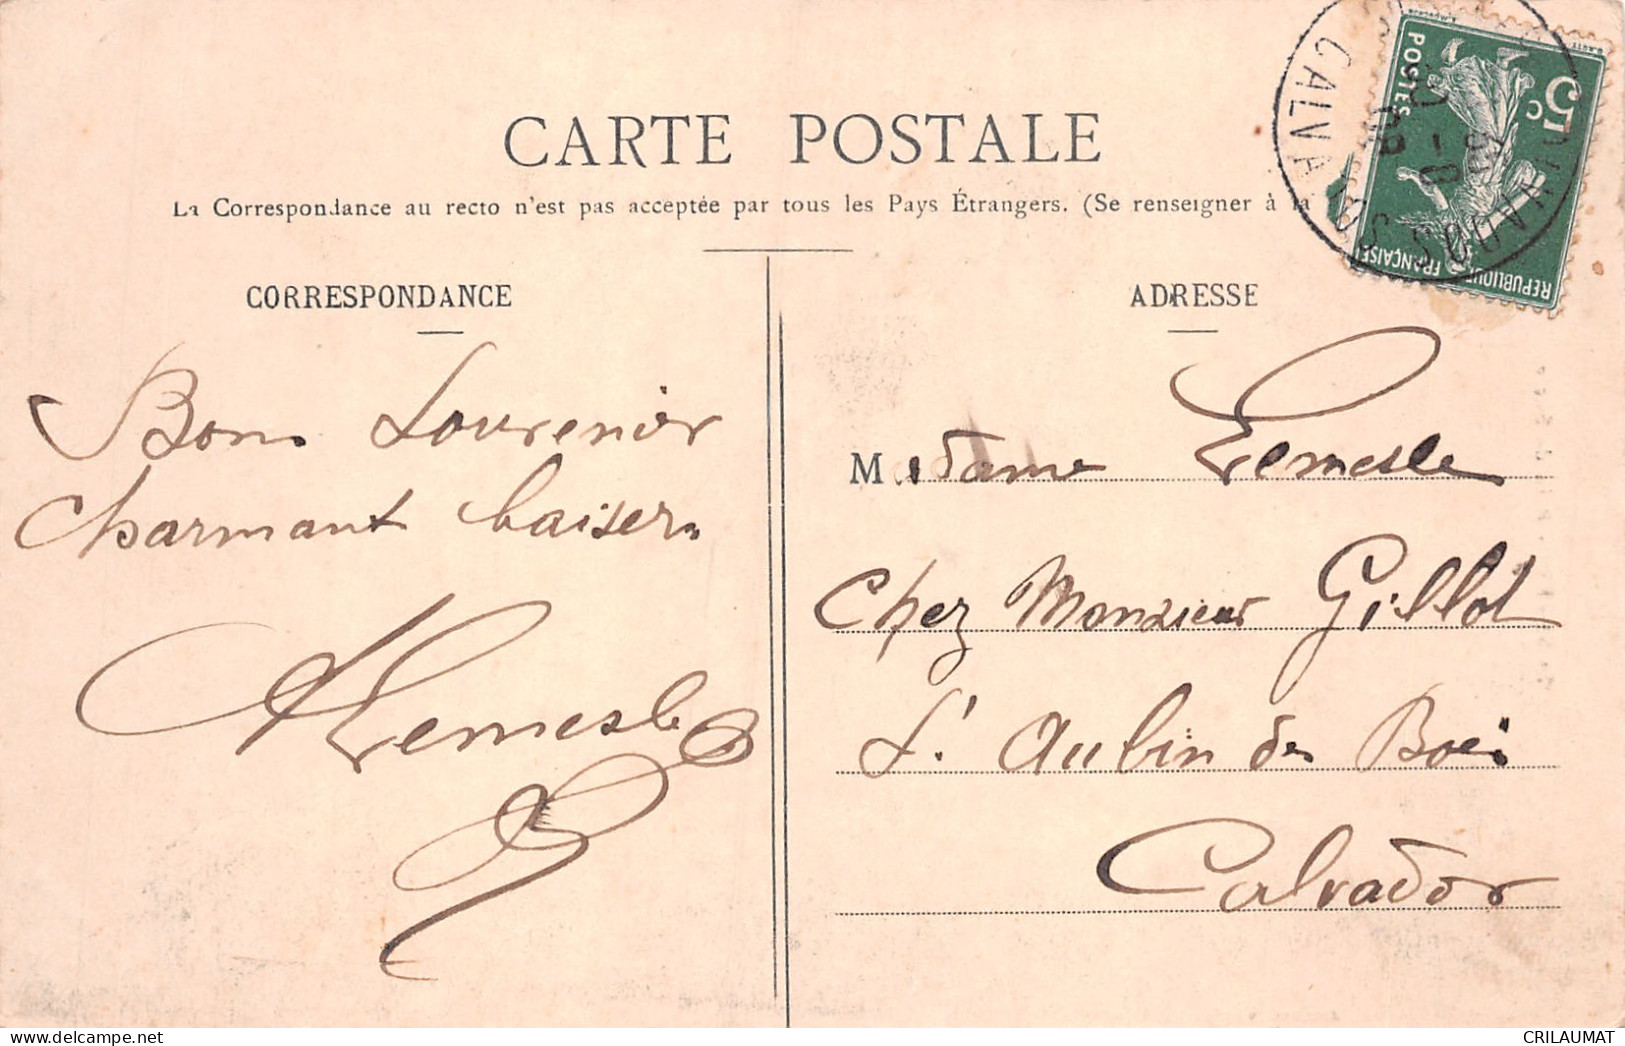 CARTE POSTALE
La Correspondance au recto n'est pas acceptée par tous les Pays Étrangers. (Se renseigner à la
CORRESPONDANCE
Bons Souvenirs
Charmants baisers
Lemesle
ADRESSE
Madame Lemesle
Chez Monsieur Gillot
St. Aubin des Bois
Calvados
5c
POSTES
REPUBLIQUE FRANÇAISE
CALVADOS
CRILAUMAT